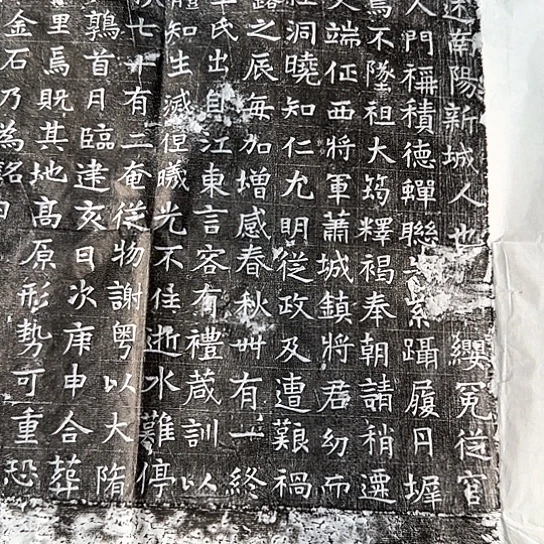 述南陽新城人也 纓冕從官
人門稱積德蟬聯朱紫躡履丹墀
焉不墜祖大筠釋褐奉朝請稍遷
父端征西將軍蕭城鎮將君幼而
洞曉知仁允明從政及遭艱禍
露之辰每加增感春秋卌有一終
氏出自江東言容有禮葴訓以
體知生滅徑曦光不住逝水難停
七十有二奄從物謝粵以大隋
鶉首月臨建亥日次庚申合葬
里焉既其地高原形勢可重恐
金石乃為銘曰